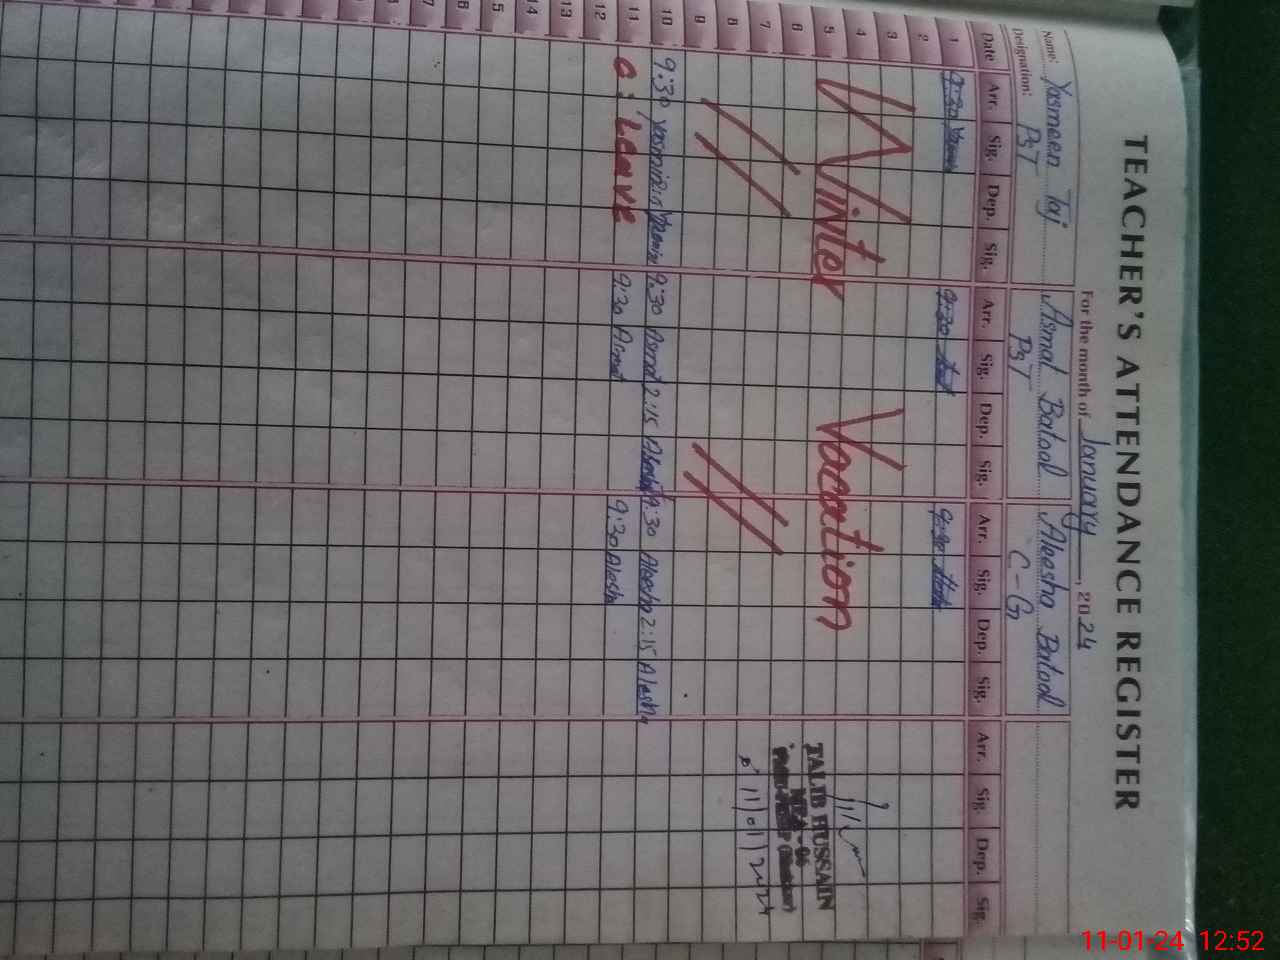 TEACHER'S ATTENDANCE REGISTER
For the month of January, 2024
Name: Yasmeen Taj Asmal Batool Aleesha Batool
Designation: PST PST C-G
Date Arr. Sig. Dep. Sig. Arr. Sig. Dep. Sig. Arr. Sig. Dep. Sig. Arr. Sig Dep. Sig.
1 9:30 9:30 9:30
2
3
4
5 Winter Vacation
6
7
8
9
10 9:30 Yasmin 9:30 Asmat 2:15 9:30 Aleesha 2:15 Alesha
11 O: Leave 9:30 Asmat 9:30 Alesha
12
13
14
15
16
17
TALIB HUSSAIN
11/01/2024
11-01-24 12:52